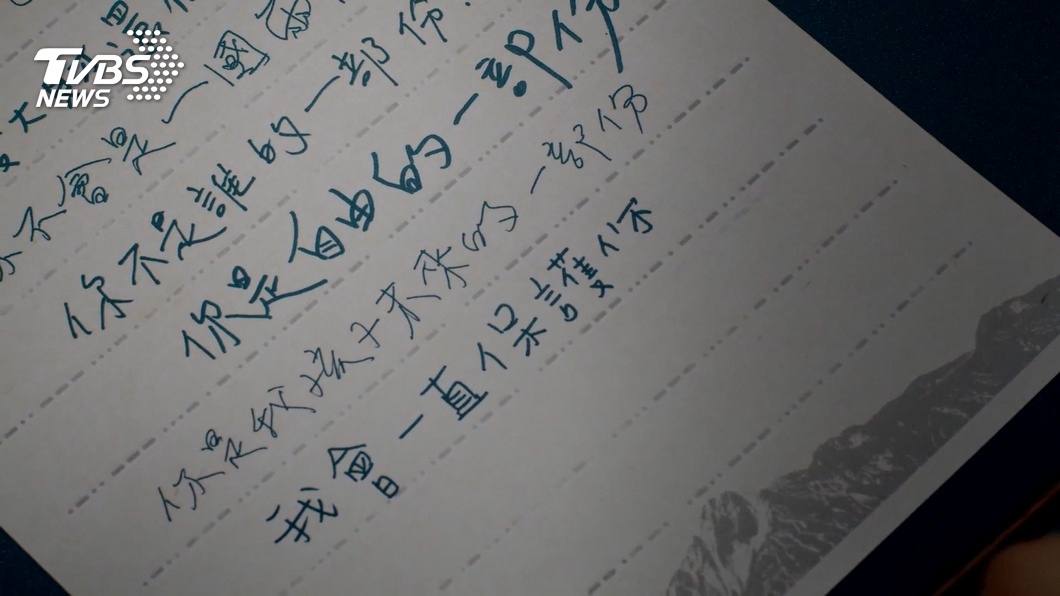 TVBS
NEWS
會是一國
你不是誰的一部份
你是自由的一部份
你是 未來的一部份
我會一直保護你